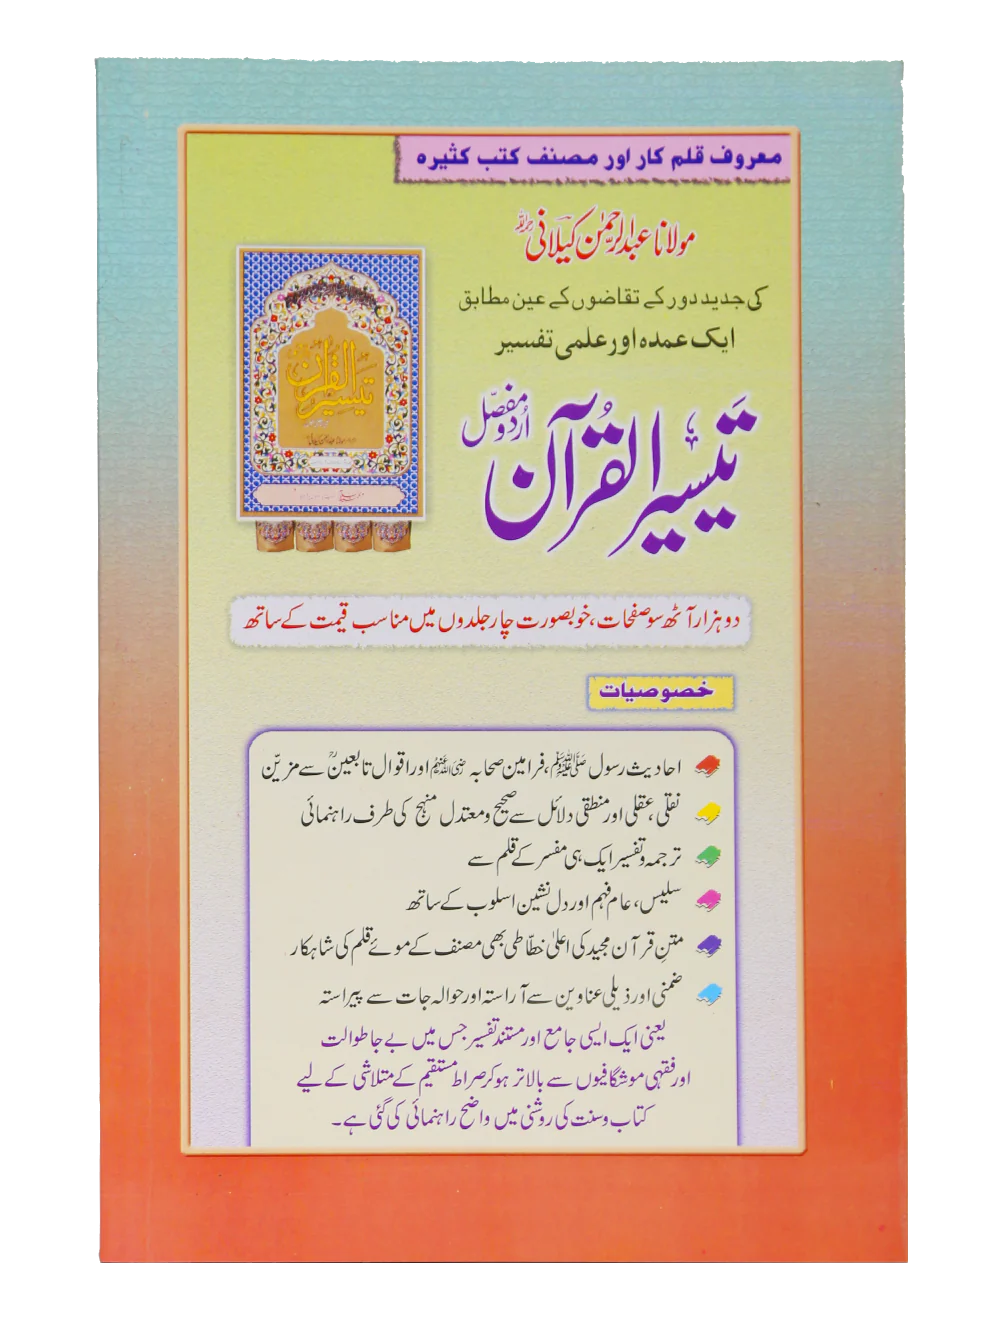 معروف قلم کار اور مصنف کتب کثیرہ
مولانا عبدالرحمٰن کیلانی رحمہ اللہ
کی جدید دور کے تقاضوں کے عین مطابق
ایک عمدہ اور علمی تفسیر
تیسیر القرآن
اردو مفصّل
تیسیر القرآن
دو ہزار آٹھ سو صفحات، خوبصورت چار جلدوں میں مناسب قیمت کے ساتھ
خصوصیات
احادیث رسول ﷺ، فرامین صحابہ رضی اللہ عنہم اور اقوال تابعینؒ سے مزیّن
نقلی، عقلی اور منطقی دلائل سے صحیح و معتدل منہج کی طرف راہنمائی
ترجمہ و تفسیر ایک ہی مفسر کے قلم سے
سلیس، عام فہم اور دل نشین اسلوب کے ساتھ
متنِ قرآن مجید کی اعلیٰ خطّاطی بھی مصنف کے موئے قلم کی شاہکار
ضمنی اور ذیلی عناوین سے آراستہ اور حوالہ جات سے پیراستہ
یعنی ایک ایسی جامع اور مستند تفسیر جس میں بے جا طوالت
اور فقہی موشگافیوں سے بالاتر ہو کر صراط مستقیم کے متلاشی کے لیے
کتاب و سنت کی روشنی میں واضح راہنمائی کی گئی ہے۔